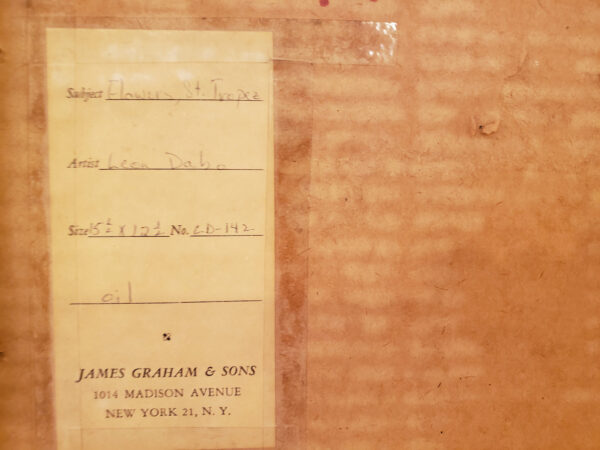 Subject Flowers, St. Tropez
Artist Leon Dabo
Size 15½ x 12½ No. LD-142
oil
JAMES GRAHAM & SONS
1014 MADISON AVENUE
NEW YORK 21, N. Y.